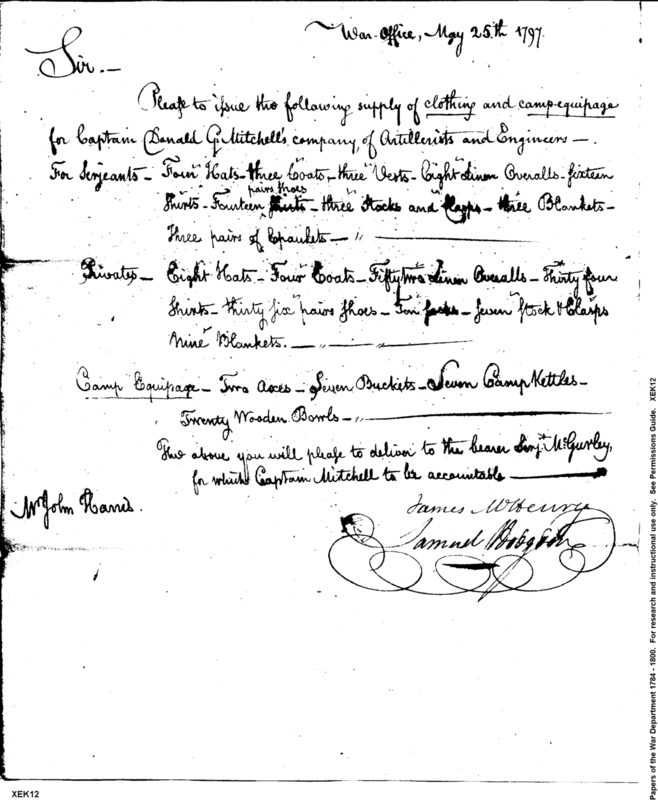 War-Office, May 25.th 1797.
Sir.—
Please to issue the following supply of clothing and camp-equipage
for Captain Donald G. Mitchell's company, of Artillerists and Engineers—.
For Serjeants— Four Hats— three Coats— three Vests— Eight Linen Overalls— sixteen
pairs shoes
Shirts— Fourteen — three Stocks and Clasps— three Blankets—
Three pairs of Epaulets— "
Privates— Eight Hats— Four Coats— Fifty two Linen Overalls— Thirty four
Shirts— thirty six pairs Shoes— Ten — seven Stock & Clasps
Nine Blankets.— " — "
Camp Equipage— Two Axes— Seven Buckets— Seven Camp Kettles—
Twenty Wooden Bowls— "
The above you will please to deliver to the bearer Serj.t McGurley,
for which Captain Mitchell to be accountable
Mr John Harris.
James McHenry
Samuel Hodgdon
XEK12
Papers of the War Department 1784 - 1800. For research and instructional use only. See Permissions Guide. XEK12